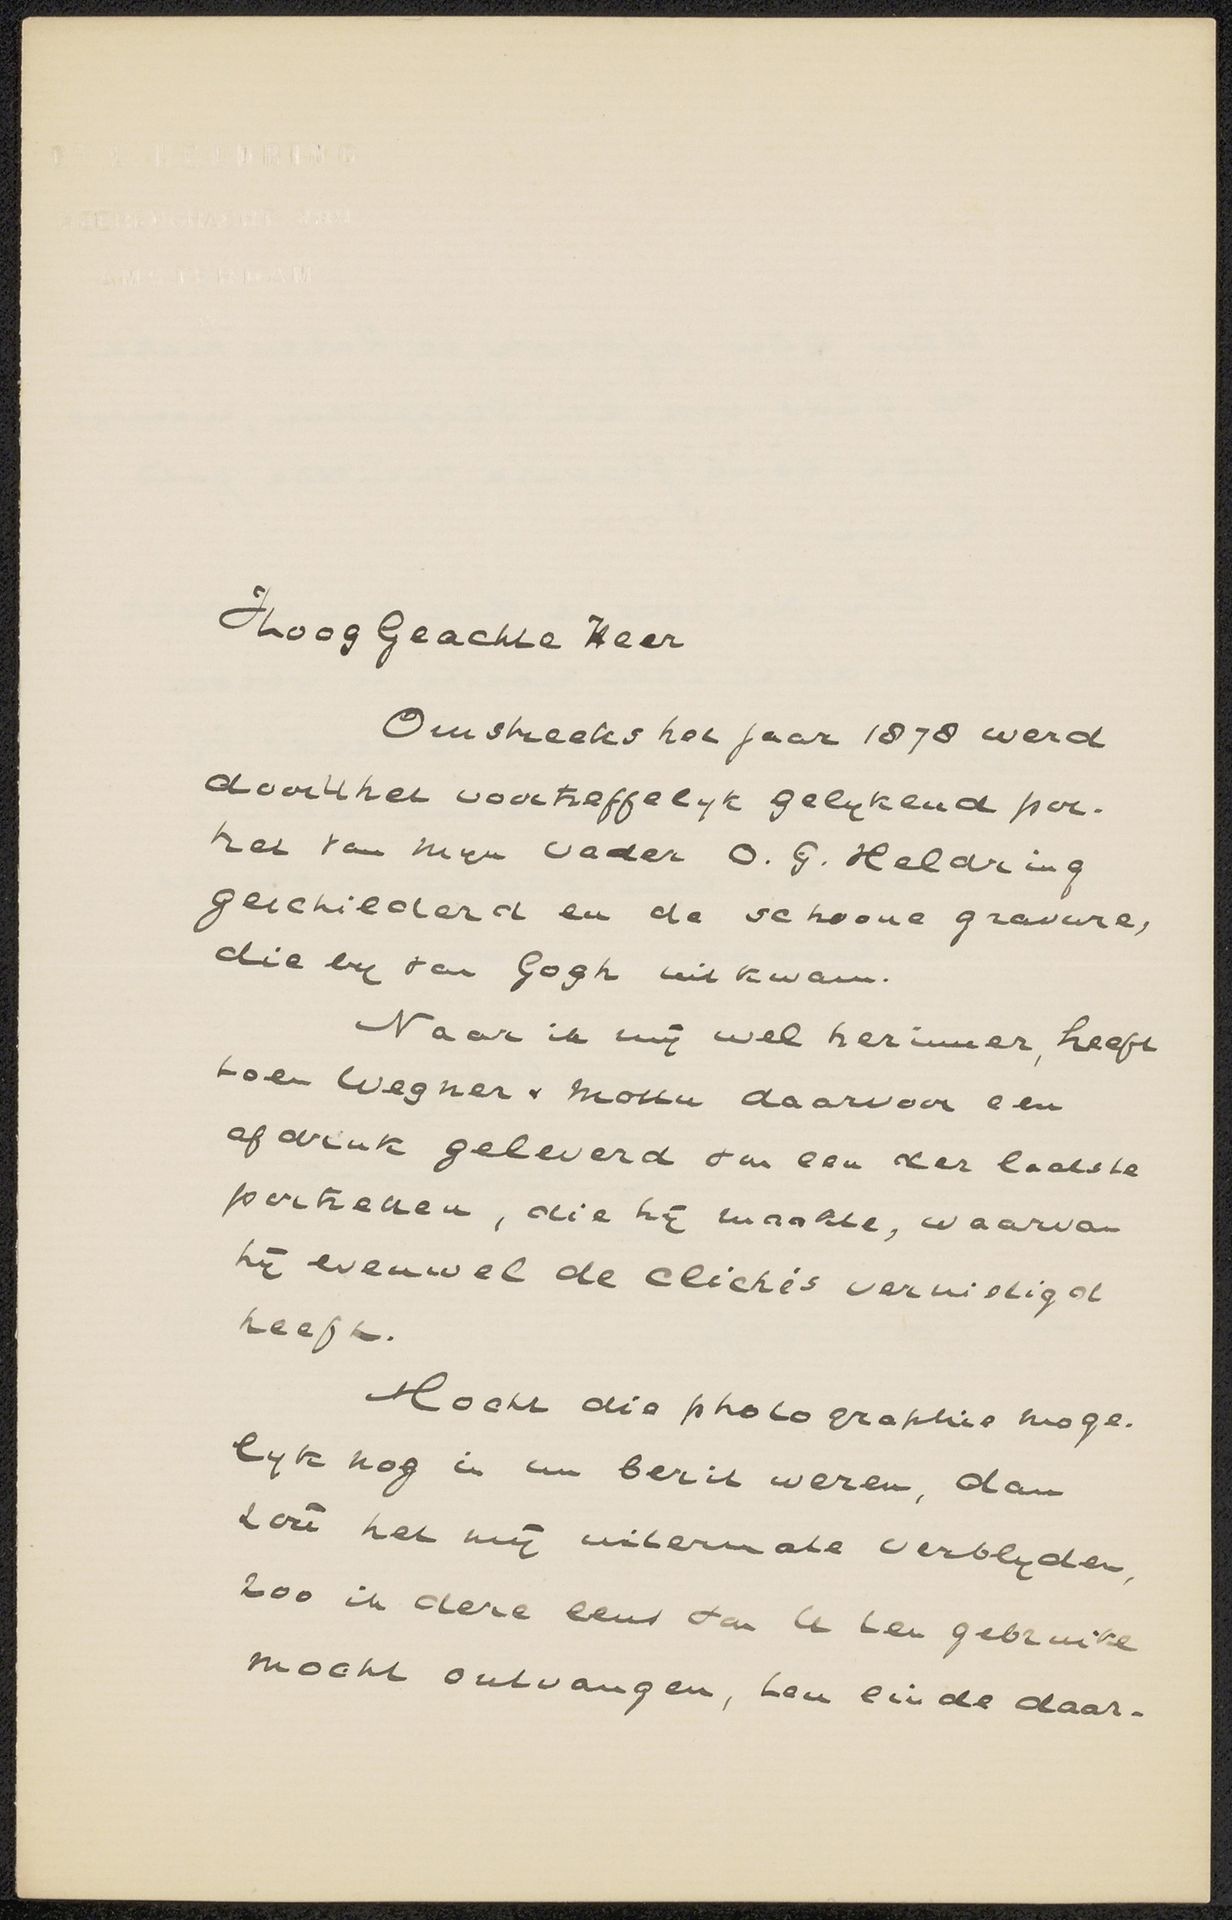 HELDRING
AMSTERDAM
Hoog Geachte Heer
Omstreeks het jaar 1878 werd
door U het voortreffelyk gelykend por-
tret van myn Vader O. G. Heldring
geschilderd en de schoone gravure,
die by van Gogh uitkwam.
Naar ik mij wel herinner, heeft
toen Wegner & Mottu daarvoor een
afdruk geleverd van een der laatste
portretten, die hij maakte, waarvan
hij evenwel de clichés vernietigd
heeft.
Mocht die photographie moge-
lyk nog in uw bezit wezen, dan
zoū het mij uitermate verblyden,
zoo ik deze eens van U ten gebruike
mocht ontvangen, ten einde daar-